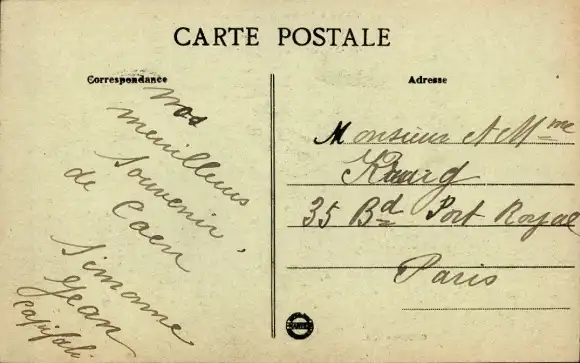 CARTE POSTALE
Correspondance
Adresse
nos
meuilleurs
souvenir,
de Caen
Simonne
Jean
Monsieur et Mme
35 Bd Port Royal
Paris